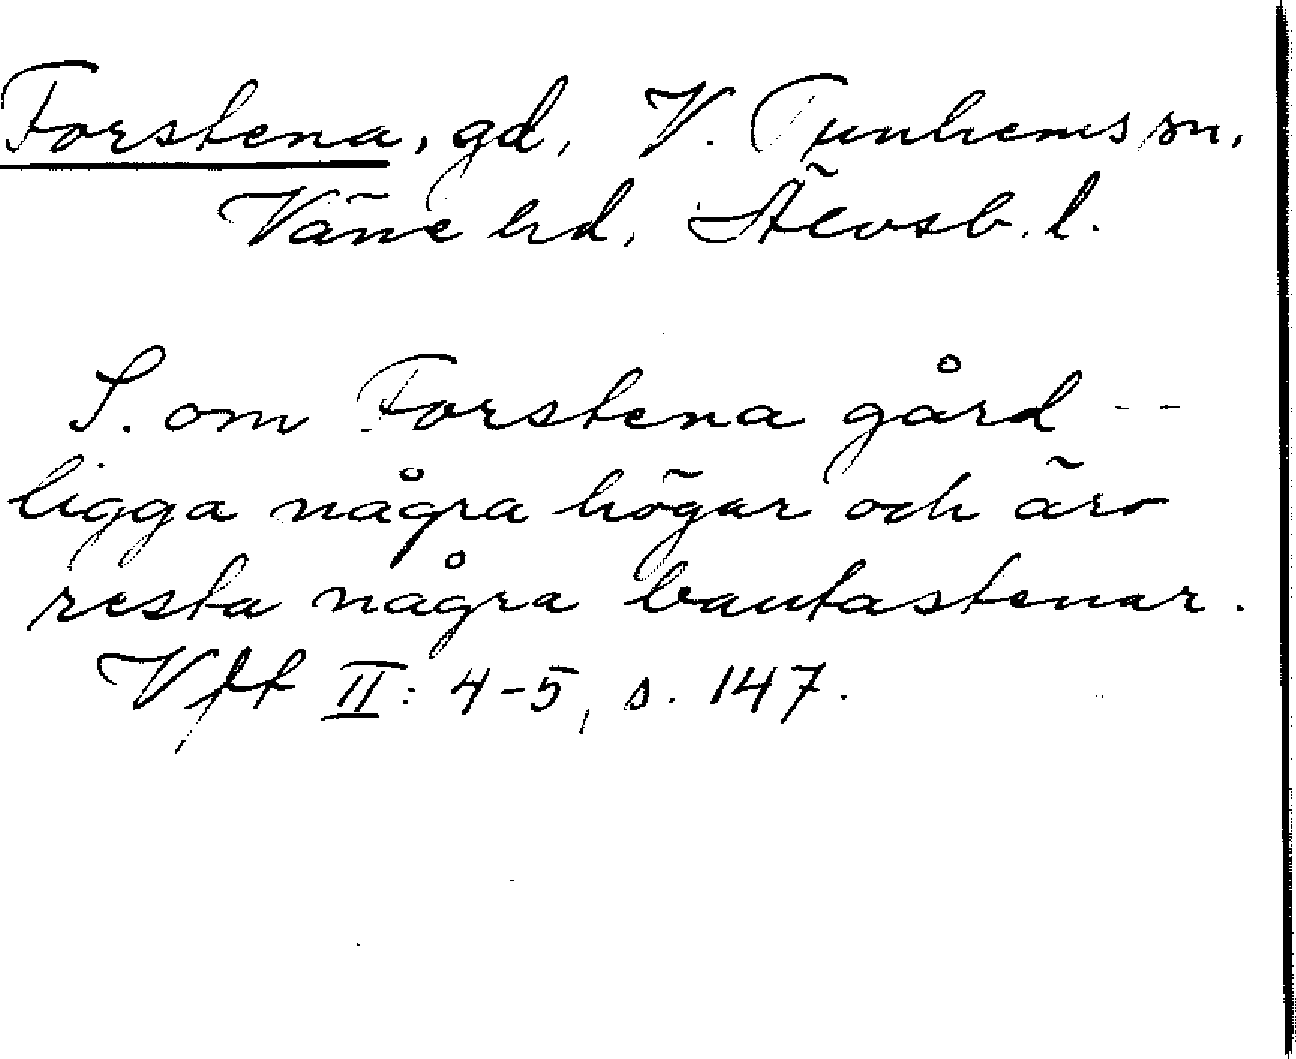 Forstena, gd, V. Tunhems sn,
Väne hd, Älvsb. l.
S. om Forstena gård --
ligga några högar och äro
resta några bautastenar.
Vft II: 4-5, s. 147.